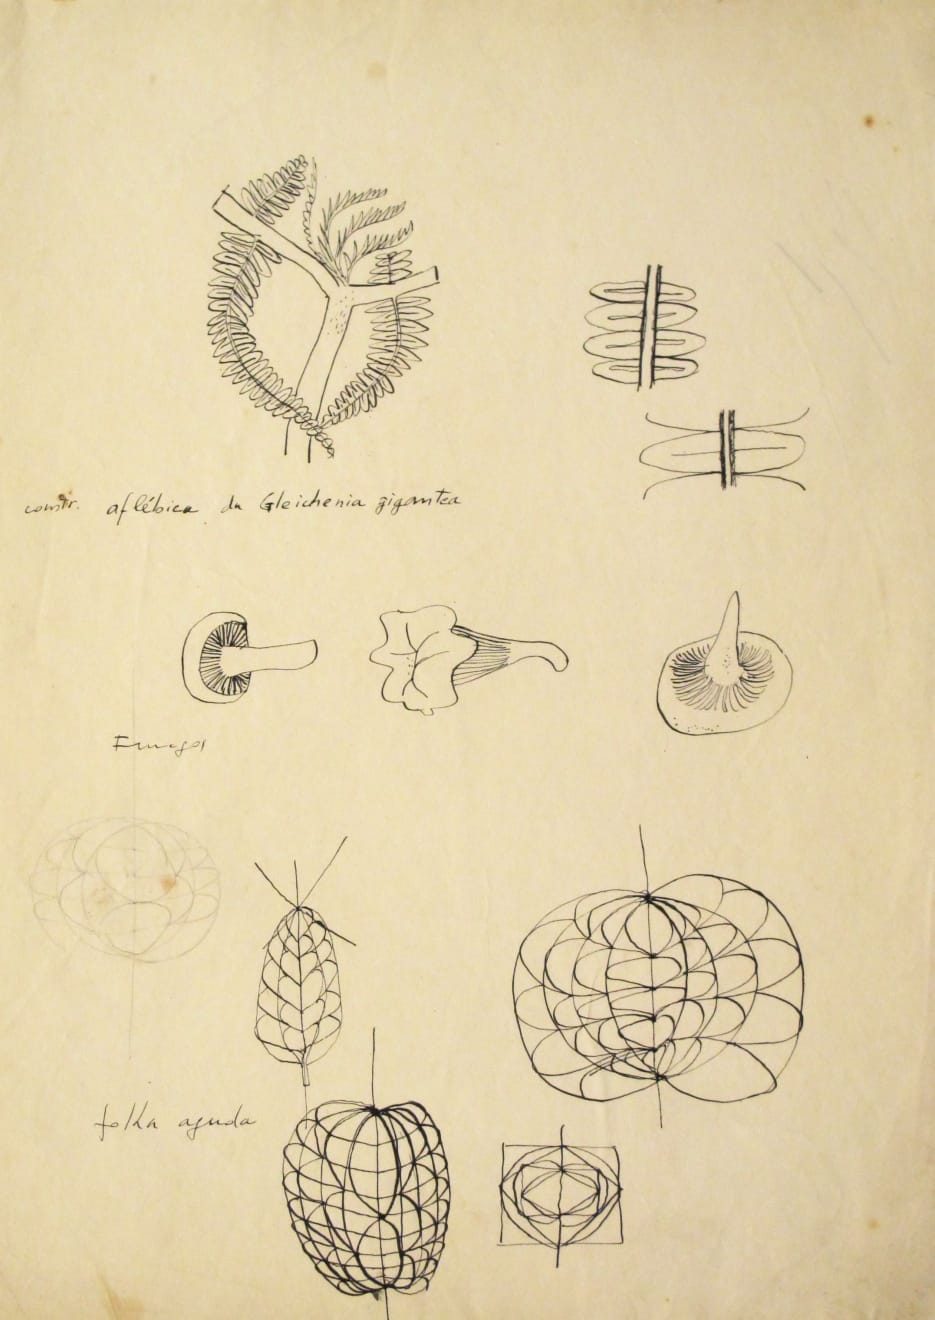 constr. aflébica da Gleichenia gigantea
Fungos
folha aguda